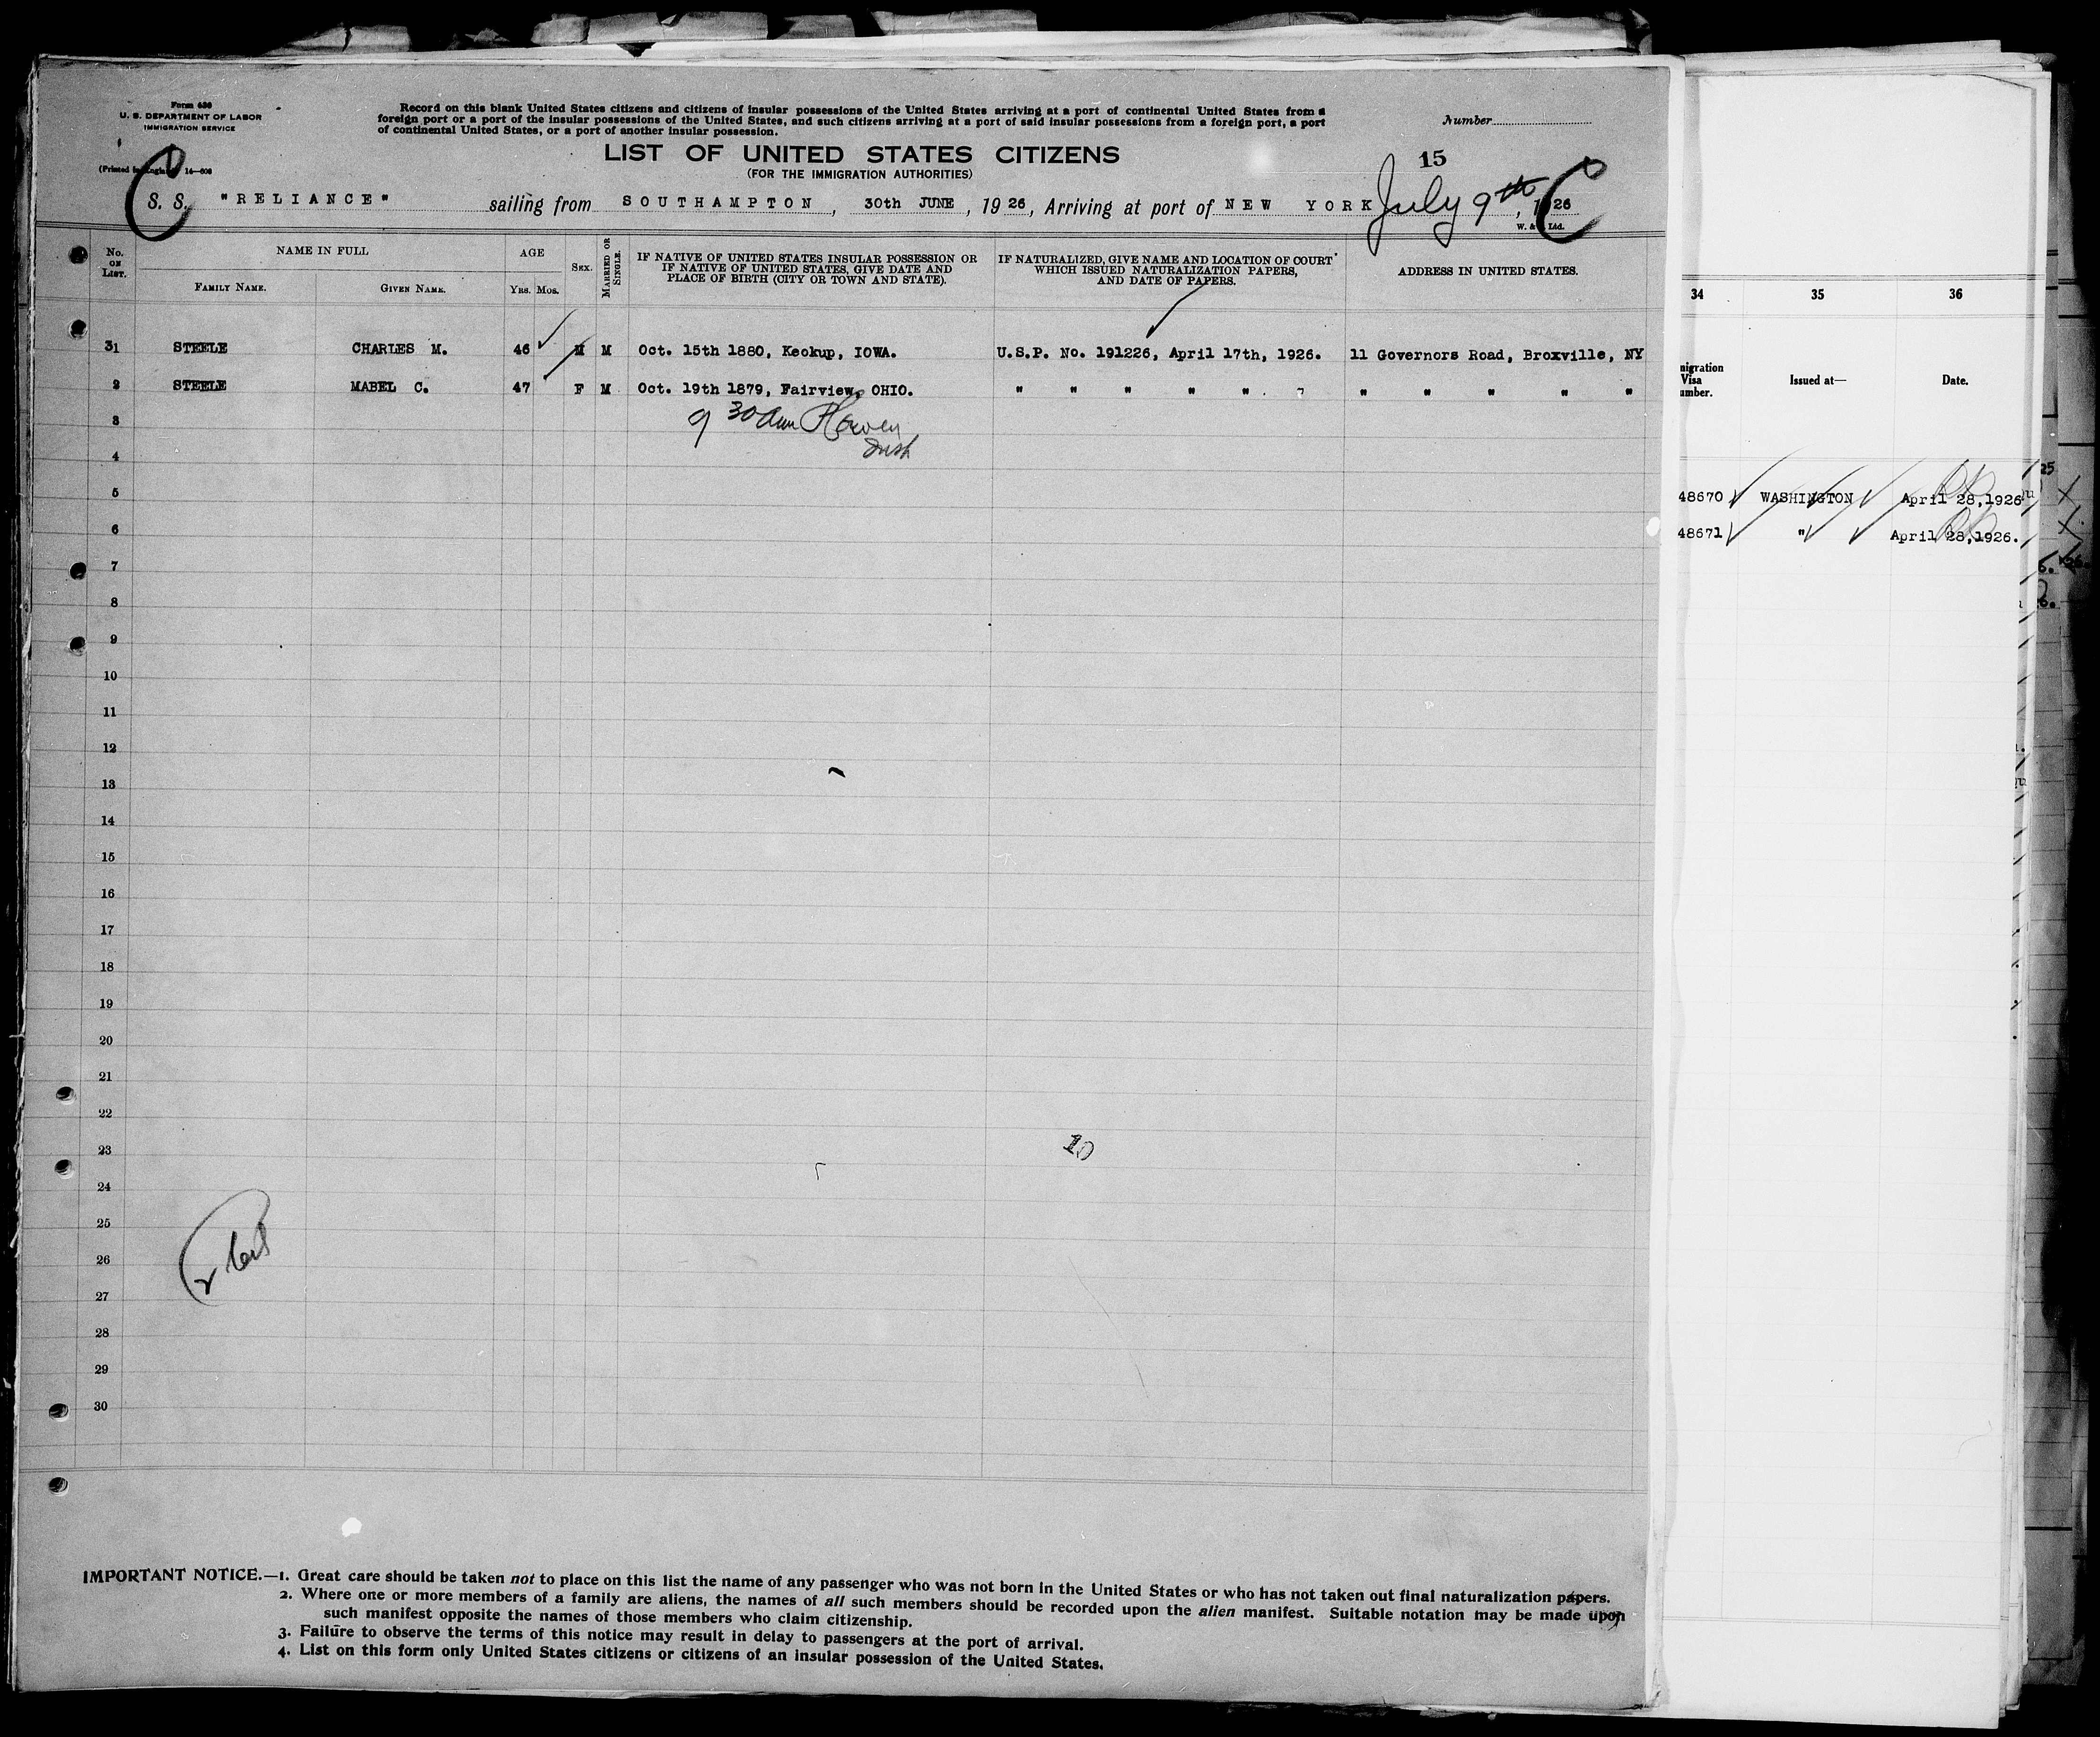 Form 630
U. S. DEPARTMENT OF LABOR
IMMIGRATION SERVICE
(Printed in England) 14—606
Record on this blank United States citizens and citizens of insular possessions of the United States arriving at a port of continental United States from a
foreign port or a port of the insular possessions of the United States, and such citizens arriving at a port of said insular possessions from a foreign port, a port
of continental United States, or a port of another insular possession.
Number
LIST OF UNITED STATES CITIZENS
(FOR THE IMMIGRATION AUTHORITIES)
15
S. S. "RELIANCE" sailing from SOUTHAMPTON, 30th JUNE, 1926, Arriving at port of NEW YORK July 9th, 1926
W. & Ltd.
No. ON LIST.
NAME IN FULL
FAMILY NAME. GIVEN NAME.
AGE
YRS. MOS.
SEX.
MARRIED OR SINGLE.
IF NATIVE OF UNITED STATES INSULAR POSSESSION OR
IF NATIVE OF UNITED STATES, GIVE DATE AND
PLACE OF BIRTH (CITY OR TOWN AND STATE).
IF NATURALIZED, GIVE NAME AND LOCATION OF COURT
WHICH ISSUED NATURALIZATION PAPERS,
AND DATE OF PAPERS.
ADDRESS IN UNITED STATES.
31 STEELE CHARLES M. 46 M M Oct. 15th 1880, Keokup, IOWA. U.S.P. No. 191226, April 17th, 1926. 11 Governors Road, Broxville, NY
2 STEELE MABEL C. 47 F M Oct. 19th 1879, Fairview, OHIO. " " " " " " " " " " "
3 9 30 am
4
5
6
7
8
9
10
11
12
13
14
15
16
17
18
19
20
21
22
23 10
24
25
26
27
28
29
30
IMPORTANT NOTICE.—1. Great care should be taken not to place on this list the name of any passenger who was not born in the United States or who has not taken out final naturalization papers.
2. Where one or more members of a family are aliens, the names of all such members should be recorded upon the alien manifest. Suitable notation may be made upon
such manifest opposite the names of those members who claim citizenship.
3. Failure to observe the terms of this notice may result in delay to passengers at the port of arrival.
4. List on this form only United States citizens or citizens of an insular possession of the United States.
34 35 36
migration
Visa
umber.
Issued at—
Date.
48670 WASHINGTON April 28,1926
48671 " April 28,1926.